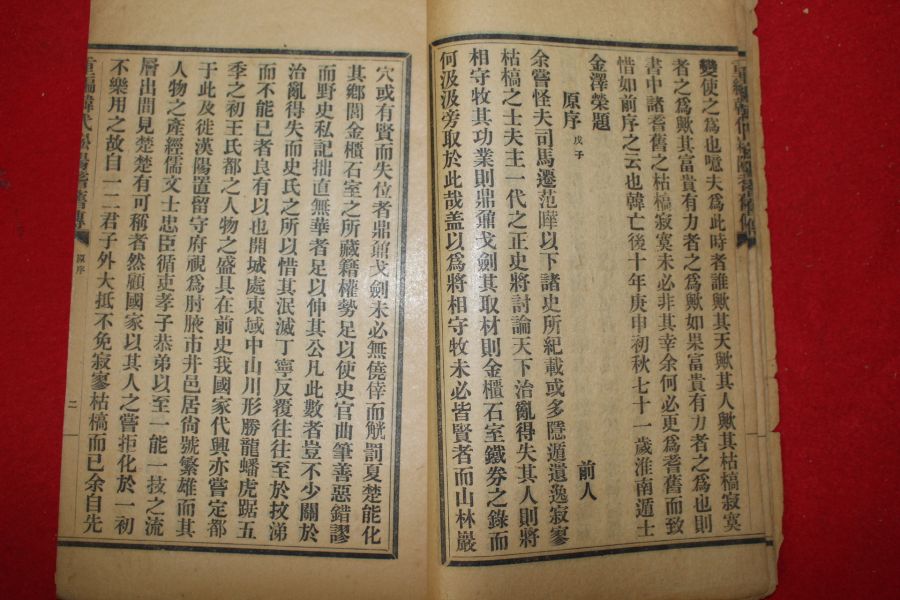 變使之爲也噫夫爲此時者誰歟其天歟其人歟其枯槁寂寞
者之爲歟其富貴有力者之爲歟如果富貴有力者之爲也則
書中諸耆舊之枯槁寂寞未必非其幸余何必更爲耆舊而致
惜如前序之云也韓亡後十年庚申初秋七十一歲淮南遁士
金澤榮題
原序 戊子 前人
余嘗怪夫司馬遷范曄以下諸史所紀載或多隱遁遺逸寂寥
枯槁之士夫主一代之正史將討論天下治亂得失其人則將
相守牧其功業則鼎鼐戈劍其取材則金櫃石室鐵券之錄而
何汲汲旁取於此哉盖以爲將相守牧未必皆賢者而山林巖
穴或有賢而失位者鼎鼐戈劍未必無僥倖而觥罰夏楚能化
其鄉閭金櫃石室之所藏籍權勢足以使史官曲筆善惡錯謬
而野史私記拙直無華者足以伸其公凡此數者豈不少關於
治亂得失而史氏之所以惜其泯滅丁寧反覆往往至於抆涕
而不能已者良有以也開城處東域中山川形勝龍蟠虎踞五
季之初王氏都之人物之盛具在前史我國家代興亦嘗定都
于此及徙漢陽置留守府視爲肘腋市井邑居尙號繁雄而其
人物之產經儒文士忠臣循吏孝子恭弟以至一能一技之流
層出間見楚楚有可稱者然顧國家以其人之嘗拒化於一初
不樂用之故自一二君子外大抵不免寂寥枯槁而已余自先
重編韓代崧陽耆舊傳 原序 二